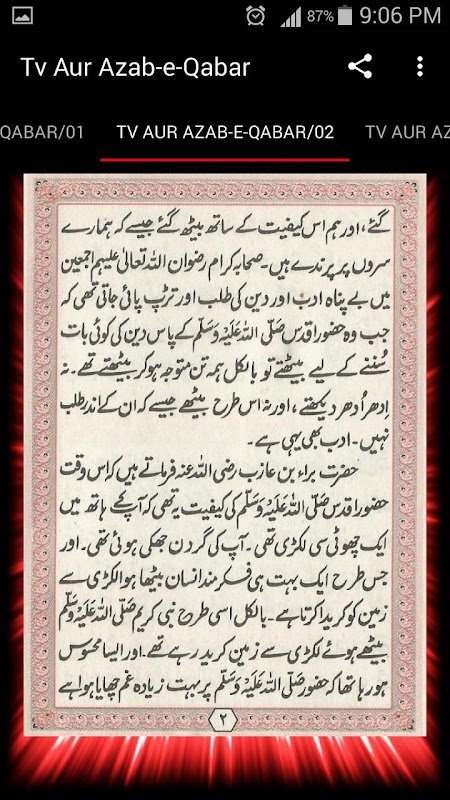 87% 9:06 PM
Tv Aur Azab-e-Qabar
QABAR/01 TV AUR AZAB-E-QABAR/02 TV AUR AZ
گئے، اور ہم اس کیفیت کے ساتھ بیٹھ گئے جیسے کہ ہمارے
سروں پر پرندے ہیں۔ صحابہ کرام رضوان اللہ تعالیٰ علیہم اجمعین
میں بے پناہ ادب اور دین کی طلب اور تڑپ پائی جاتی تھی کہ
جب وہ حضور اقدس صلی اللہ علیہ وسلم کے پاس دین کی کوئی بات
سُننے کے لیے بیٹھتے تو بالکل ہمہ تن متوجہ ہو کر بیٹھتے تھے۔ نہ
اِدھر اُدھر دیکھتے، اور نہ اس طرح بیٹھے جیسے کہ ان کے اندر طلب
نہیں۔ ادب بھی یہی ہے۔
حضرت براء بن عازب رضی اللہ عنہ فرماتے ہیں کہ اس وقت
حضور اقدس صلی اللہ علیہ وسلم کی کیفیت یہ تھی کہ آپ کے ہاتھ میں
ایک چھوٹی سی لکڑی تھی۔ آپ کی گردن جھکی ہوئی تھی۔ اور
جس طرح ایک بہت ہی فکر مند انسان بیٹھا ہوا لکڑی سے
زمین کو کریدا کرتا ہے۔ بالکل اسی طرح نبی کریم صلی اللہ علیہ وسلم
بیٹھے ہوئے لکڑی سے زمین کرید رہے تھے۔ اور ایسا محسوس
ہو رہا تھا کہ حضور صلی اللہ علیہ وسلم پر بہت زیادہ غم چھایا ہوا ہے
۲